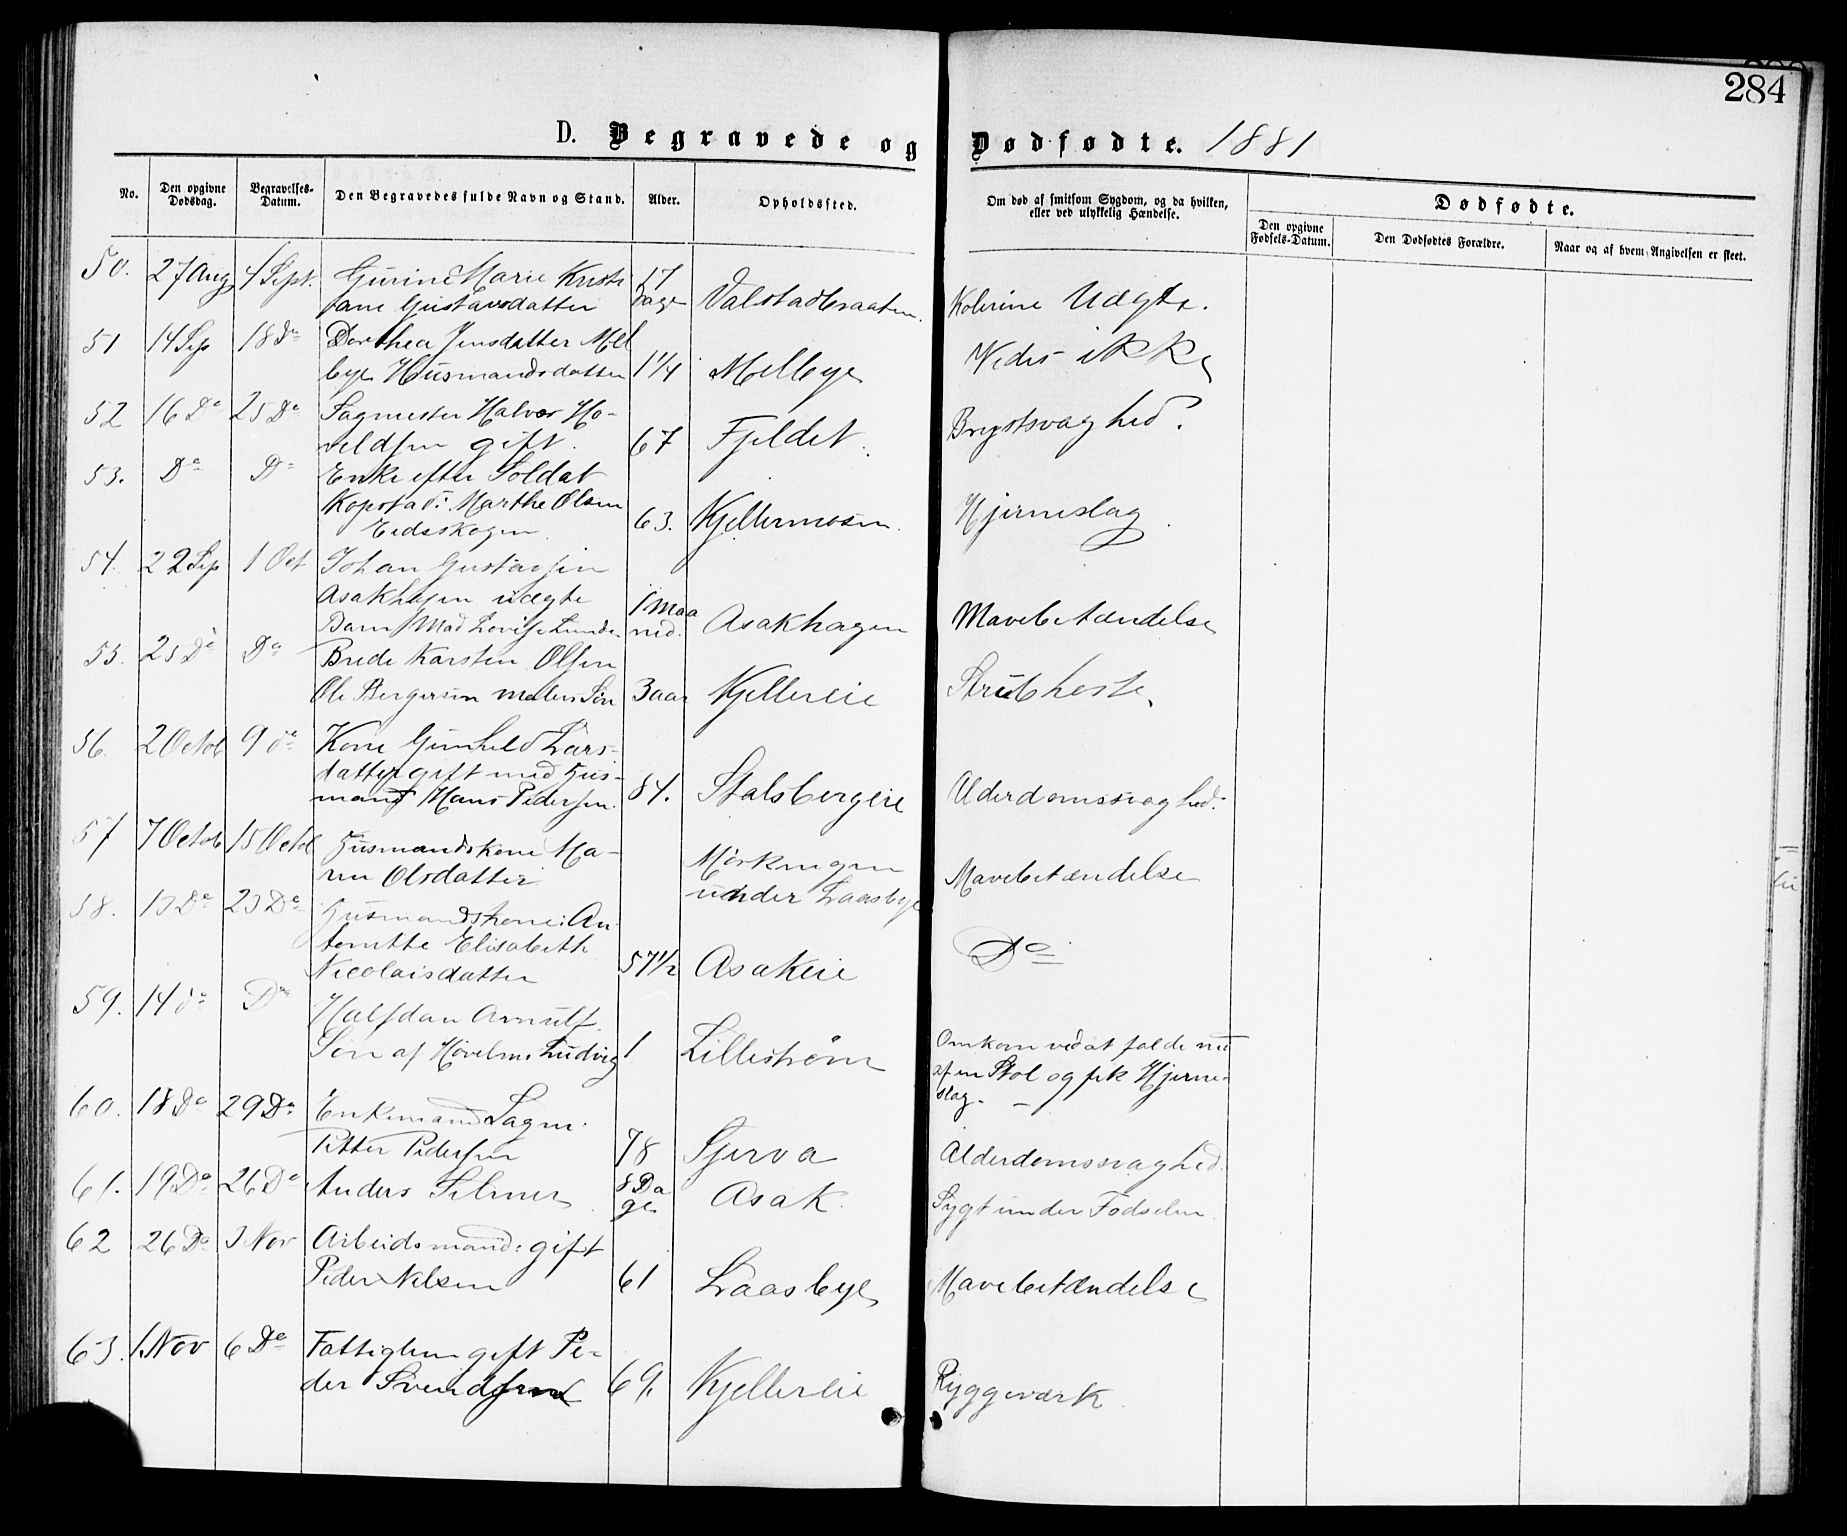 284
D. Begravede og Dødfødte. 1881
No.
Den opgivne Dødsdag.
Begravelses-Datum.
Den Begravedes fulde Navn og Stand.
Alder.
Opholdssted.
Om død af smitsom Sygdom, og da hvilken, eller ved ulykkelig Hændelse.
Dødfødte.
Den opgivne Fødsels-Datum.
Den Dødfødtes Forældre.
Naar og af hvem Angivelsen er skeet.
50. 27 Aug 4 Sept. Gurine Marie Kristi 17
jane Gustavsdatter Dage Valstadbraaten. Kolerine Udgte.
51 14 Sep 18 Do Dorthea Jensdatter Mel
bye Husmandsdatter 1 1/4 Melbye Vides ikke
52 16 Do 25 Do Sagmester Halvor Ho-
veldsen gift. 67 Fjeldet. Brystsvaghed.
53. Do Do Enke efter Soldat
Kopstad: Marthe Olsen 63. Kjellermosen. Hjerneslag
Eidsskogen.
54. 22 Sep 1 Oct Johan Gustavsen
Asakhagen uægte 1 Maa
Barn Mad Lovise Lunde. ned. Asakhagen Mavebetændelse
55. 25 Do Do Brede Karsten Olsen
Ole Bergersen Malers Søn 3 aar Kjellereie Strubehoste.
56. 2 Octob 9 do Kone Gunhild Lars-
datter gift med Hus-
mand Hans Pedersen. 84. Stalsbergeie Alderdomssvaghed.
57 7 Octob 15 Octob Husmandskone Ma-
ren Olsdatter Mørkengen
under Laasbye Mavebetændelse
58. 13 Do 23 Do Husmandskone: An
tonette Elisabeth
Nicolaisdatter 57 1/2 Asakeie Do
59. 14 do Do Halfdan Arnulf.
Søn af Høvelm. Ludvig 1 Lillestrøm Omkom ved at falde ned
af en Stol og fik Hjerne-
slag.
60. 18 Do 29 Do Enkemand Sagm.
Petter Pedersen 78 Sjerva Alderdomssvaghed.
61. 19 Do 26 Do Anders Selmer 8 Da
ge Asak. Sygt under Fødselen.
62 26 Do 3 Nov Arbeidsmand: gift
Peder Nilsen 61 Laasbye Mavebetændelse
63. 1. Nov 6 Do Fattiglem gift Pe-
der Svendsen 69. Kjellereie Ryggeværk.